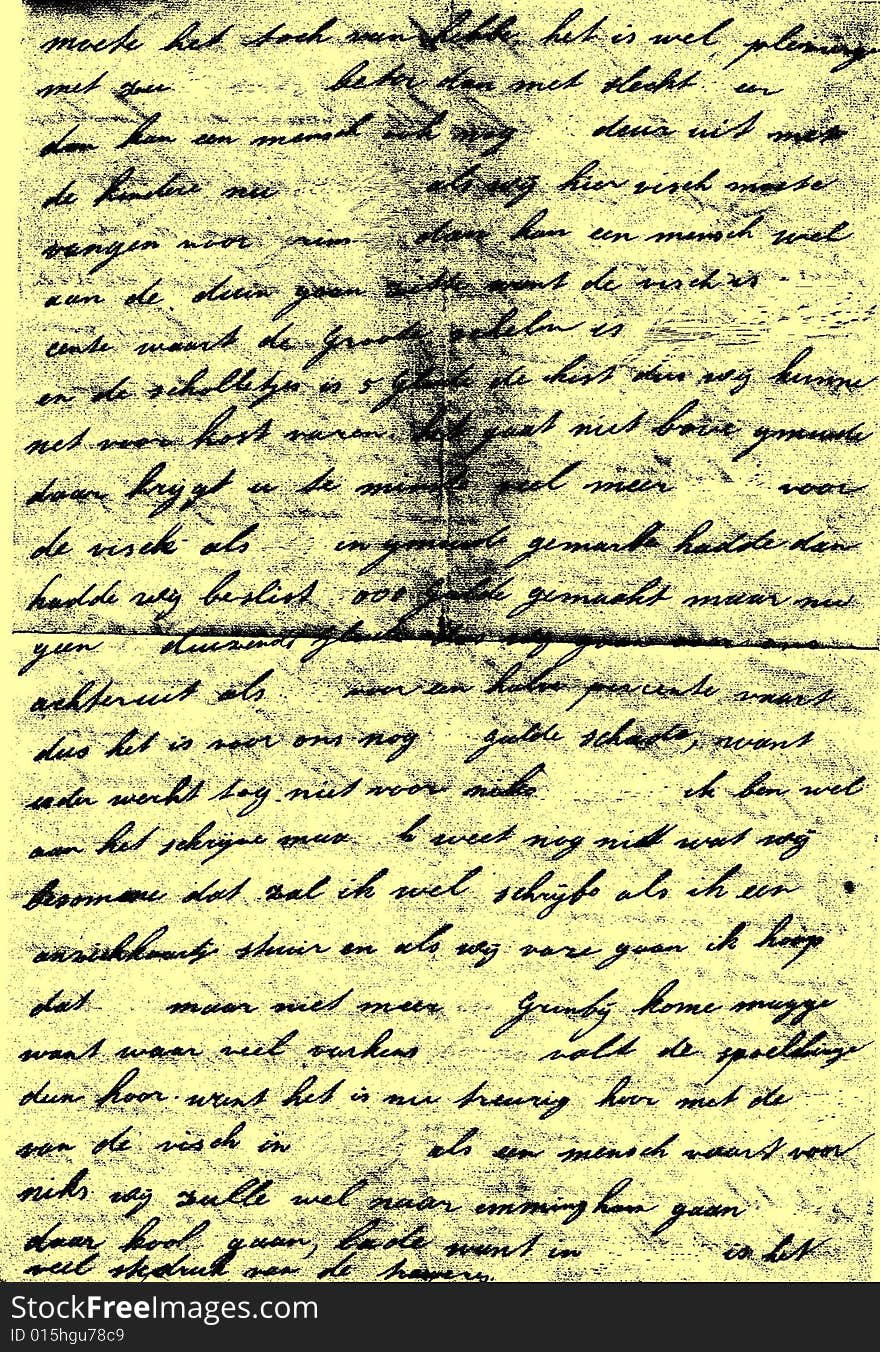 moete het toch van het is wel
met zee beter dan met slecht er
dan kan een mensch ook nog deur uit met
de kindere nu als wij hier visch moete
vangen voor dan kan een mensch wel
aan de duin gaan zitte want de visch is
cente waart de Groote schelvis is
en de scholletjes is 5 de kist dus wij kunne
net voor kost varen. het gaat niet bove ymuude
daar krygt u te minste veel meer voor
de visch als in ymuude gemarkt hadde dan
hadde wij beslist 000 gulde gemaakt maar nu
geen duizend wij gaan ons
achteruit als voor een halve percente vaart
dus het is voor ons nog gulde schade, want
ieder werkt tog niet voor niks ik ben wel
aan het schrijve maar ik weet nog niet wat wij
besomme dat zal ik wel schrijfe als ik een
anzichkaartje stuur en als wij vare gaan ik hoop
dat maar niet meer Grimbij kome magge
want waar veel varkens valt de spoelinge
dun hoor want het is nu treurig hoor met de
van de visch in als een mensch vaart voor
niks wij zulle wel naar emmingham gaan
daar kool gaan, lade want in is het
veel van de
StockFreeImages.com
ID 015hgu78c9